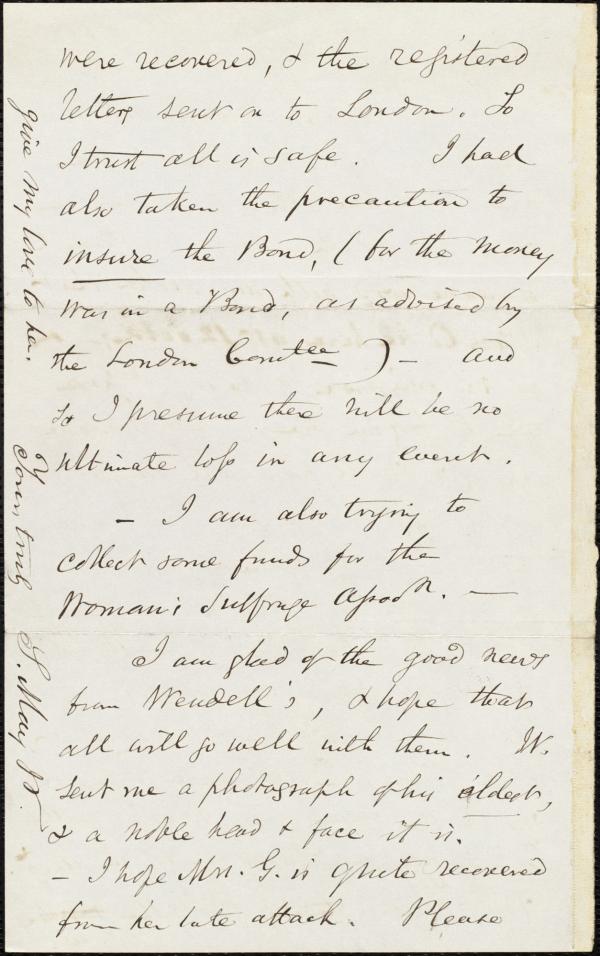 were recovered, & the registered
letters sent on to London. So
I trust all is safe. I had
also taken the precaution to
insure the Bond, (for the money
was in a Bond, as advised by
the London Comtee) - and
so I presume there will be no
ultimate loss in any event.
- I am also trying to
collect some funds for the
Woman's Suffrage Assocn. -
I am glad of the good news
from Wendell's, & hope that
all will go well with them. W.
sent me a photograph of his eldest,
& a noble head & face it is.
- I hope Mrs. G. is quite recovered
from her late attack. Please
give my love to her.
Yours truly S. May Jr.